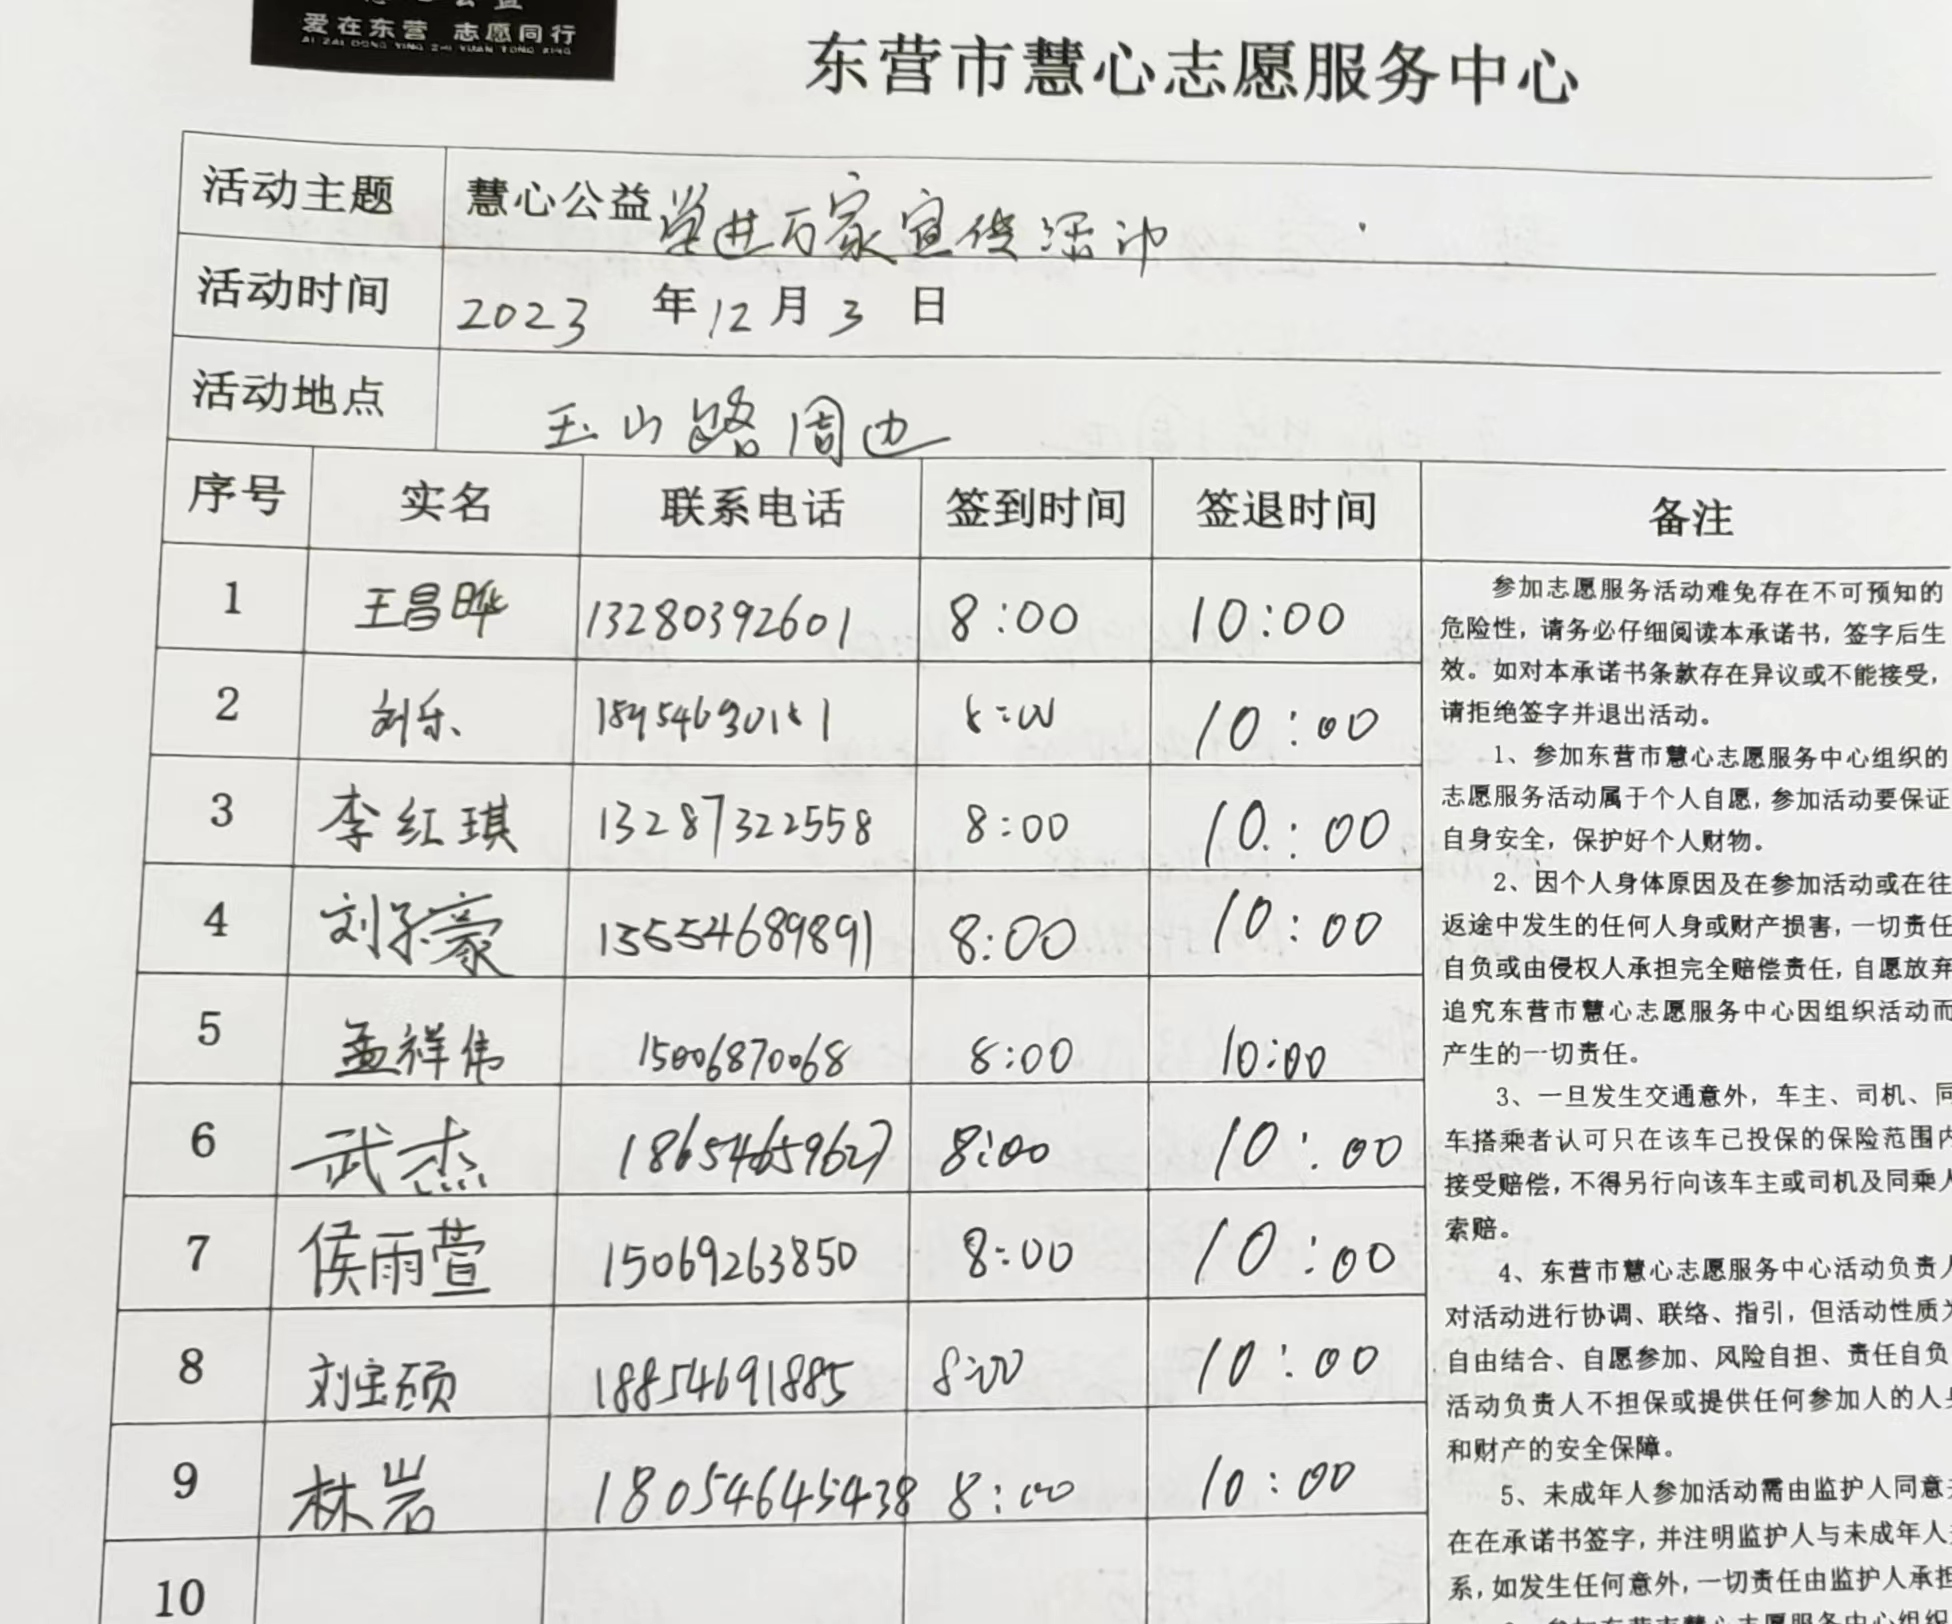 爱在东营 志愿同行
AI ZAI DONG YING ZHI YUAN TONG XING
东营市慧心志愿服务中心
活动主题 慧心公益学进万家宣传活动
活动时间 2023 年 12 月 3 日
活动地点 玉山路周边
序号 实名 联系电话 签到时间 签退时间 备注
1 王昌晔 13280392601 8:00 10:00
2 刘乐 8:00 10:00
3 李红琪 13287322558 8:00 10:00
4 刘子豪 15554689891 8:00 10:00
5 孟祥伟 15006870068 8:00 10:00
6 武杰 18654659627 8:00 10:00
7 侯雨萱 15069263850 8:00 10:00
8 刘宝硕 18854691885 8:00 10:00
9 林岩 18054645438 8:00 10:00
10
参加志愿服务活动难免存在不可预知的
危险性，请务必仔细阅读本承诺书，签字后生
效。如对本承诺书条款存在异议或不能接受，
请拒绝签字并退出活动。
1、参加东营市慧心志愿服务中心组织的
志愿服务活动属于个人自愿，参加活动要保证
自身安全，保护好个人财物。
2、因个人身体原因及在参加活动或在往
返途中发生的任何人身或财产损害，一切责任
自负或由侵权人承担完全赔偿责任，自愿放弃
追究东营市慧心志愿服务中心因组织活动而
产生的一切责任。
3、一旦发生交通意外，车主、司机、同
车搭乘者认可只在该车已投保的保险范围内
接受赔偿，不得另行向该车主或司机及同乘人
索赔。
4、东营市慧心志愿服务中心活动负责人
对活动进行协调、联络、指引，但活动性质为
自由结合、自愿参加、风险自担、责任自负
活动负责人不担保或提供任何参加人的人身
和财产的安全保障。
5、未成年人参加活动需由监护人同意
在在承诺书签字，并注明监护人与未成年人
系，如发生任何意外，一切责任由监护人承担